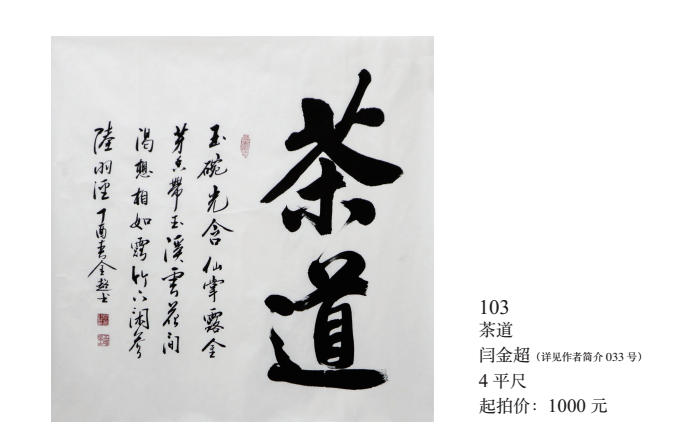 茶道
玉碗光含仙掌露金
芽香帶玉溪雲花间
渴想相如露竹下闲參
陸羽經丁酉春金超书
103
茶道
闫金超（详见作者简介 033 号）
4 平尺
起拍价：1000 元